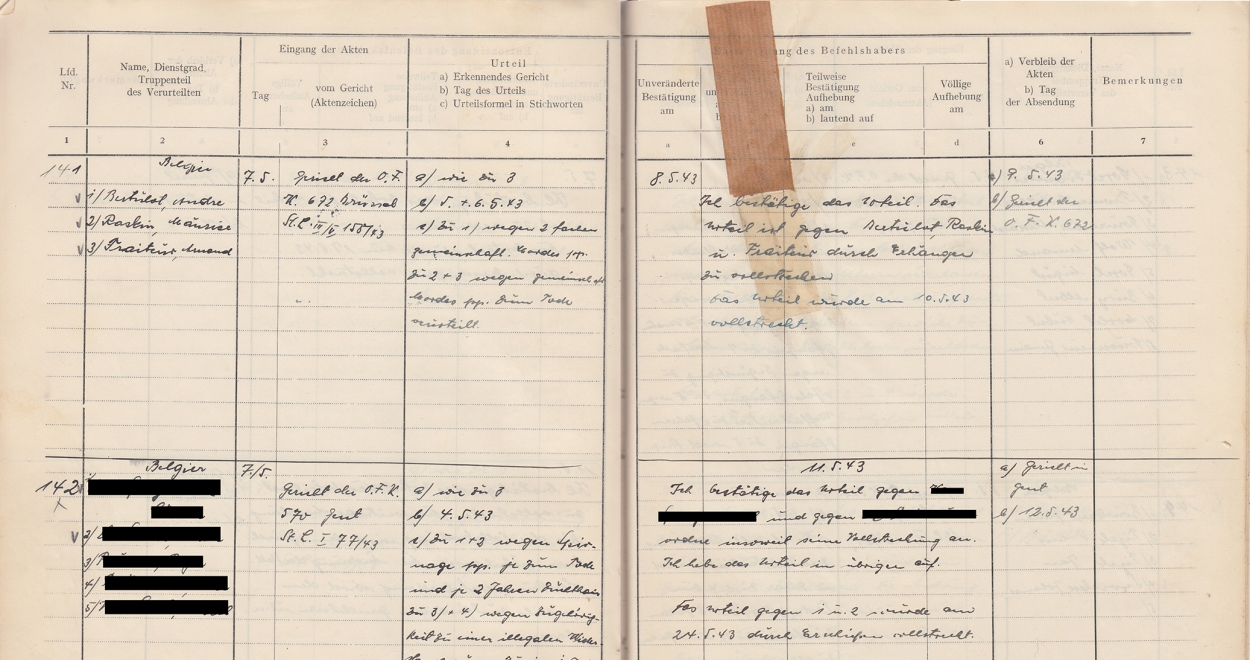 Eingang der Akten
Urteil
des Befehlshabers
Lfd. Nr.
Name, Dienstgrad.
Truppenteil
des Verurteilten
Tag
vom Gericht
(Aktenzeichen)
a) Erkennendes Gericht
b) Tag des Urteils
c) Urteilsformel in Stichworten
Unveränderte
Bestätigung
am
Teilweise
Bestätigung
Aufhebung
a) am
b) lautend auf
Völlige
Aufhebung
am
a) Verbleib der
Akten
b) Tag
der Absendung
Bemerkungen
1 2 3 4 a c d 6 7
141 Belgier 7.5. Gericht der O.F. a) wie zu 3 8.5.43 a) 9. 5.43
1) Bertulot, Andre K. 672 Brüssel b) 5. + 6.5.43 Ich bestätige das Urteil. Das b) Gericht der
2) Raskin, Maurice St.L. 158/43 c) zu 1) wegen 2 fachen Urteil ist gegen Bertulot, Raskin O. F. K. 672
3) Fraiteur, Arnaud gemeinschaft. Mordes pp. u. Fraiteur durch Erhängen
zu 2 + 3 wegen gemeinschaftl. zu vollstrecken
Mordes pp. zum Tode Das Urteil wurde am 10.5.43
verurteilt. vollstreckt.
Belgier 7./5. 11.5.43 a) Gericht in
142 Gericht der O.F.K. a) wie zu 3 Ich bestätige das Urteil gegen Gent
570 Gent b) 4.5.43 und gegen b) 12.5.43
2) St.L. I 77/43 c) zu 1+2 wegen Spio- ordne insoweit seine Vollstreckung an.
3) nage pp. je zum Tode Ich hebe das Urteil im übrigen auf.
4) und je 2 Jahren Zuchthaus
5) zu 3) + 4) wegen Zugehörig- Das Urteil gegen 1 u. 2 wurde am
keit zu einer illegalen Wider- 24.5.43 durch Erschießen vollstreckt.